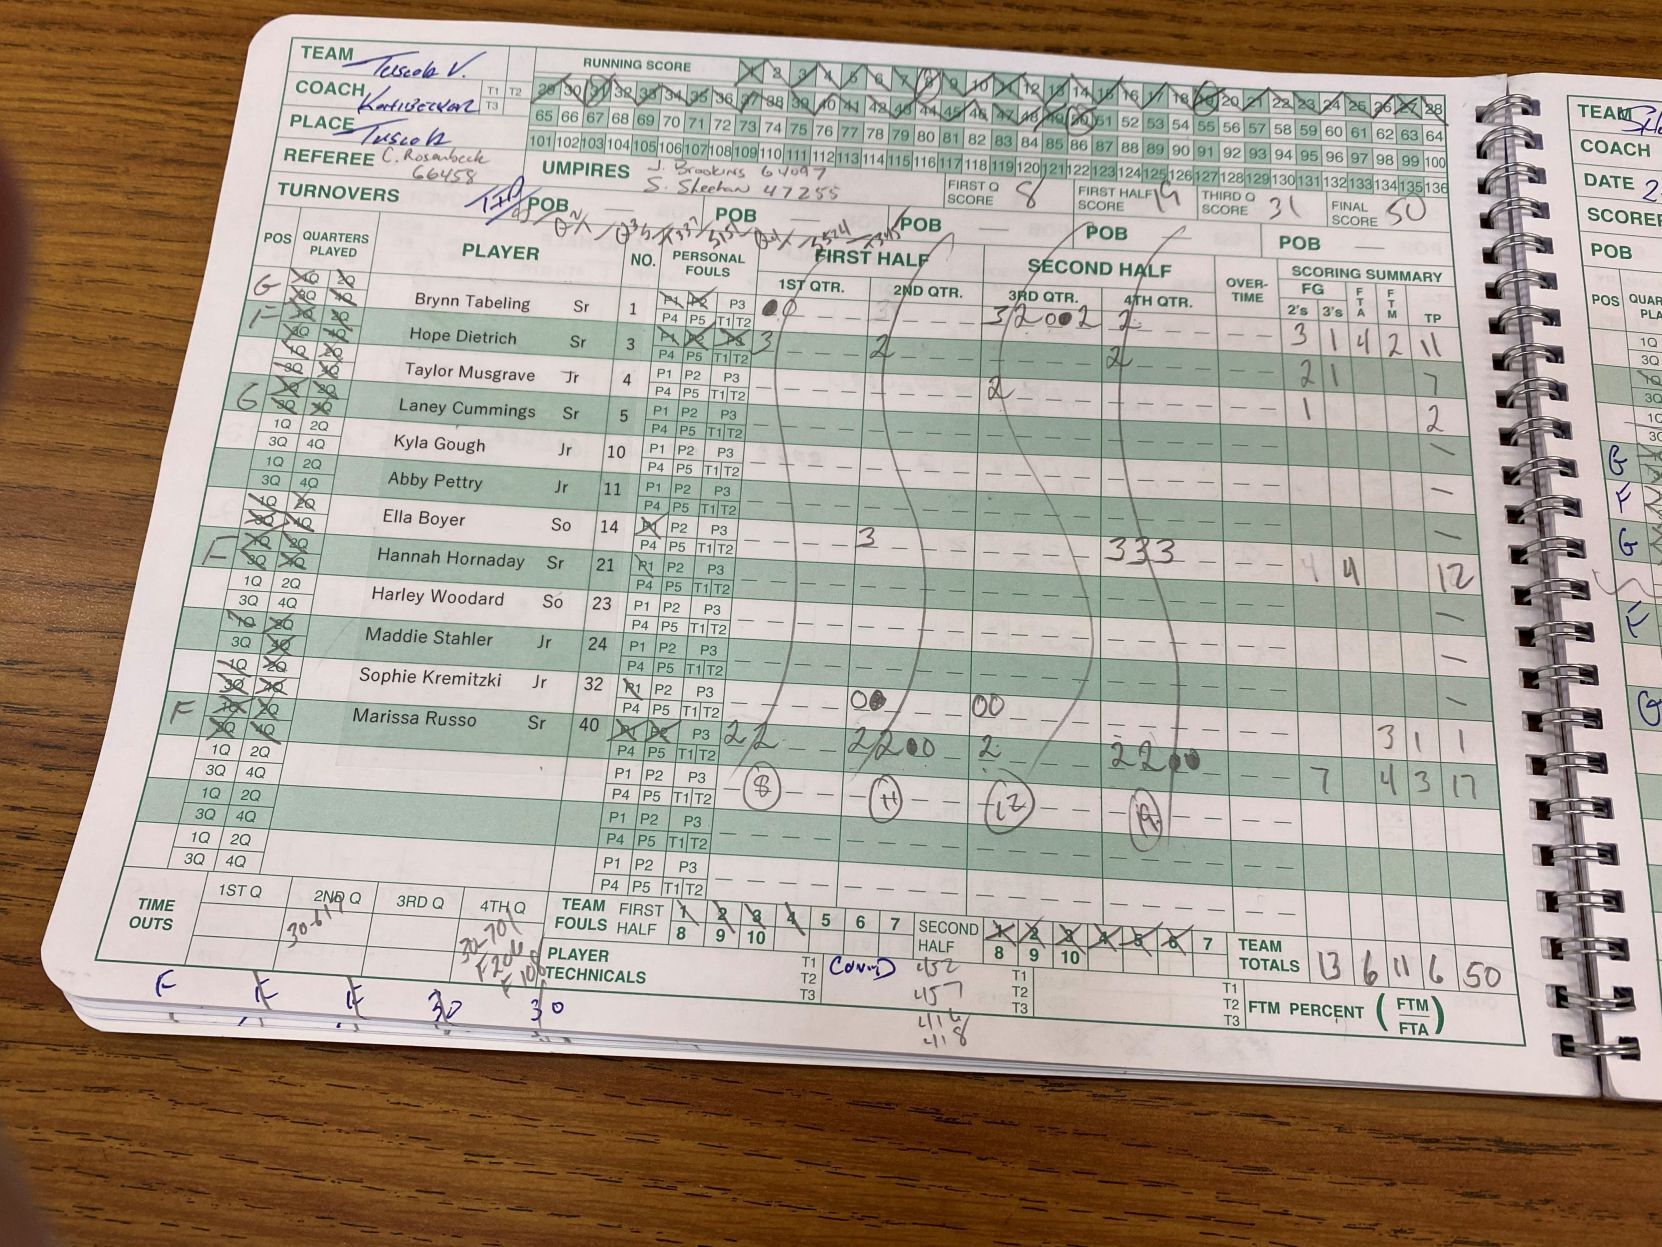 TEAM Tuscola V.
RUNNING SCORE
1 2 3 4 5 6 7 8 9 10 11 12 13 14 15 16 17 18 19 20 21 22 23 24 25 26 27 28
COACH T1 T2 T3
29 30 31 32 33 34 35 36 37 38 39 40 41 42 43 44 45 46 47 48 49 50 51 52 53 54 55 56 57 58 59 60 61 62 63 64
PLACE Tuscola
65 66 67 68 69 70 71 72 73 74 75 76 77 78 79 80 81 82 83 84 85 86 87 88 89 90 91 92 93 94 95 96 97 98 99 100
101 102 103 104 105 106 107 108 109 110 111 112 113 114 115 116 117 118 119 120 121 122 123 124 125 126 127 128 129 130 131 132 133 134 135 136
REFEREE C. Rosenbeck 66458
UMPIRES J. Brookins 64097
S. Sheehan 47255
FIRST Q SCORE 8 FIRST HALF SCORE 19 THIRD Q SCORE 31 FINAL SCORE 50
TURNOVERS POB POB POB POB POB
POS QUARTERS PLAYED PLAYER NO. PERSONAL FOULS FIRST HALF SECOND HALF OVER-TIME SCORING SUMMARY
1ST QTR. 2ND QTR. 3RD QTR. 4TH QTR. FG 2's 3's FTA FTM TP
G 1Q 2Q 3Q 4Q Brynn Tabeling Sr 1 P1 P2 P3 P4 P5 T1 T2 3 1 4 2 11
F 1Q 2Q 3Q 4Q Hope Dietrich Sr 3 P1 P2 P3 P4 P5 T1 T2 3 2 2 2 1 7
1Q 2Q 3Q 4Q Taylor Musgrave Jr 4 P1 P2 P3 P4 P5 T1 T2 2 1 2
G 1Q 2Q 3Q 4Q Laney Cummings Sr 5 P1 P2 P3 P4 P5 T1 T2
1Q 2Q 3Q 4Q Kyla Gough Jr 10 P1 P2 P3 P4 P5 T1 T2
1Q 2Q 3Q 4Q Abby Pettry Jr 11 P1 P2 P3 P4 P5 T1 T2
1Q 2Q 3Q 4Q Ella Boyer So 14 P1 P2 P3 P4 P5 T1 T2 3 333 4 12
F 1Q 2Q 3Q 4Q Hannah Hornaday Sr 21 P1 P2 P3 P4 P5 T1 T2
1Q 2Q 3Q 4Q Harley Woodard So 23 P1 P2 P3 P4 P5 T1 T2
1Q 2Q 3Q 4Q Maddie Stahler Jr 24 P1 P2 P3 P4 P5 T1 T2
1Q 2Q 3Q 4Q Sophie Kremitzki Jr 32 P1 P2 P3 P4 P5 T1 T2 3 1 1
F 1Q 2Q 3Q 4Q Marissa Russo Sr 40 P1 P2 P3 P4 P5 T1 T2 22 2 7 4 3 17
1Q 2Q 3Q 4Q P1 P2 P3 P4 P5 T1 T2 8 11 12 19
1Q 2Q 3Q 4Q P1 P2 P3 P4 P5 T1 T2
1Q 2Q 3Q 4Q P1 P2 P3 P4 P5 T1 T2
TIME OUTS 1ST Q 2ND Q 3RD Q 4TH Q
TEAM FOULS FIRST HALF 1 2 3 4 5 6 7 8 9 10 SECOND HALF 1 2 3 4 5 6 7 8 9 10 TEAM TOTALS 13 6 11 6 50
PLAYER TECHNICALS T1 T2 T3 Covid T1 T2 T3 T1 T2 T3 FTM PERCENT (FTM/FTA)
452
457
418
F F F 30 30
TEAM
COACH
DATE
SCORER
POB
POS
G
F
G
F